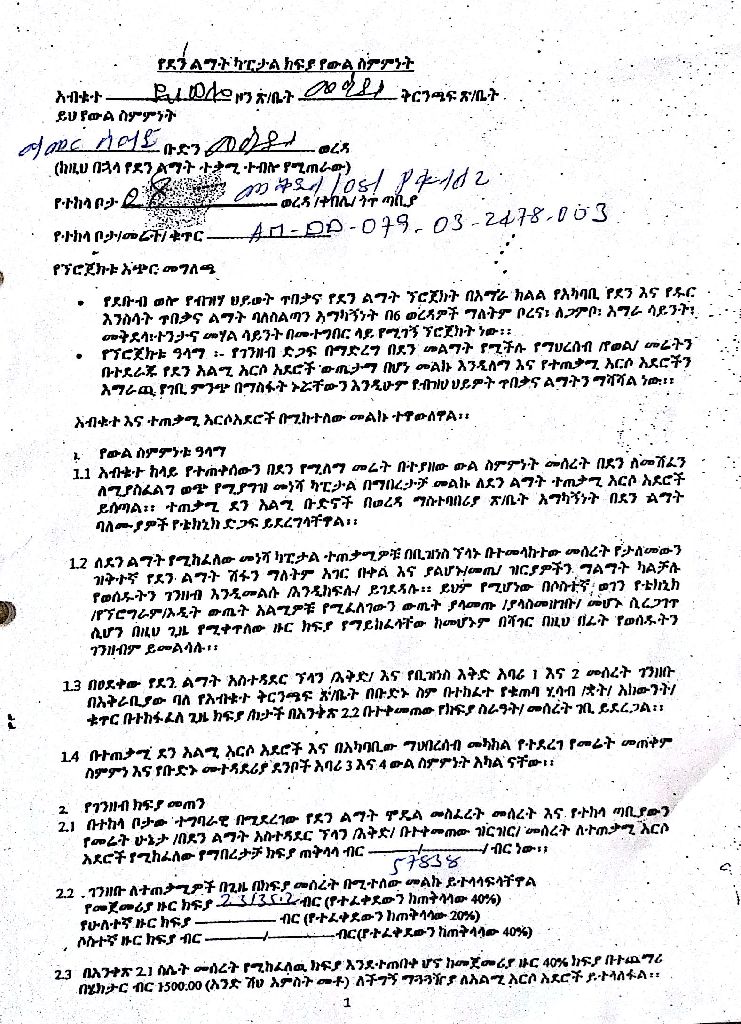 የደን ልማት ካፒታል ክፍያ የውል ስምምነት
አብቁተ ደ/ወሎ ዞን ጽ/ቤት መካነ ቅርንጫፍ ጽ/ቤት
ይህ የውል ስምምነት
ቡድን ወረዳ
(ከዚህ በኋላ የደን ልማት ተቃሚ ተብሎ የሚጠራው)
የተከላ ቦታ 08 ወረዳ /ቀበሌ/ ትጥ ጣቢያ
የተከላ ቦታ/መሬት/ ቁጥር AM-DD-079-03-2478-003
የፕሮጀክቱ አጭር መግለጫ
• የደቡብ ወሎ የብዝሃ ህይወት ጥበቃና የደን ልማት ፕሮጀክት በአማራ ክልል የአካባቢ የደን እና የዱር
እንስሳት ጥበቃና ልማት ባለስልጣን አማካኝነት በ6 ወረዳዎች ማለትም ቦረና፣ ለጋምቦ፣ አማራ ሳይንት፣
መቅደላ፣ተንታና መሃል ሳይንት በመተግበር ላይ የሚገኝ ፕሮጀክት ነው፡፡
• የፕሮጀክቱ ዓላማ ፡- የገንዘብ ድጋፍ በማድረግ በደን መልማት የሚችሉ የማህረሰብ /የወል/ መሬትን
በተደራጁ የደን አልሚ አርሶ አደሮች ውጤታማ በሆነ መልኩ እንዲለማ እና የተጠቃሚ አርሶ አደሮችን
አማራጪ የገቢ ምንጭ በማስፋት ኑሯቸውን እንዲሁም የብዝሃ ህይዎት ጥበቃና ልማትን ማሻሻል ነው፡፡
አብቁተ እና ተጠቃሚ አርሶአደሮች በሚከተለው መልኩ ተዋውለዋል፡፡
1. የውል ስምምነቱ ዓላማ
1.1 አብቁተ ከላይ የተጠቀሰውን በደን የሚለማ መሬት በተያዘው ውል ስምምነት መሰረት በደን ለመሸፈን
ለሚያስፈልግ ወጭ የሚያግዝ መነሻ ካፒታል በማበረታቻ መልኩ ለደን ልማት ተጠቃሚ አርሶ አደሮች
ይሰጣል፡፡ ተጠቃሚ ደን አልሚ ቡድኖች በወረዳ ማስተባበሪያ ጽ/ቤት አማካኝነት በደን ልማት
ባለሙያዎች የቴክኒክ ድጋፍ ይደረግላቸዋል፡፡
1.2 ለደን ልማት የሚከፈለው መነሻ ካፒታል ተጠቃሚዎቹ በቢዝነስ ፕላኑ በተመላከተው መሰረት የታለመውን
ዝቅተኛ የደን ልማት ሽፋን ማለትም አገር በቀል እና ያልሆኑ/መጤ/ ዝርያዎችን ማልማት ካልቻሉ
የወሰዱትን ገንዘብ እንዲመልሱ /እንዲከፍሉ/ ይገደዳሉ፡፡ ይህም የሚሆነው በሶስተኛ ወገን የቴክኒክ
/የፕሮግራም/ኦዲት ውጤት አልሚዎቹ የሚፈለገውን ውጤት ያላመጡ /ያላስመዘገቡ/ መሆኑ ሲረጋገጥ
ሲሆን በዚህ ጊዜ የሚቀጥለው ዙር ክፍያ የማይከፈላቸው ከመሆኑም በሻገር በዚህ ዘፊት የወሰዱትን
ገንዘብም ይመልሳሉ፡፡
1.3 በፀደቀው የደን ልማት አስተዳደር ፕላን /እቅድ/ እና የቢዝነስ እቅድ አባሪ 1 እና 2 መሰረት ገንዘቡ
በአቅራቢያው ባለ የአብቁተ ቅርንጫፍ ጽ/ቤት በቡድኑ ስም በተከፈተ የቁጠባ ሂሳብ /ቋት/ አከውንት/
ቁጥር በተከፋፈለ ጊዜ ክፍያ /ከታች በአንቅጽ 2.2 በተቀመጠው የክፍያ ስራዓት/ መሰረት ገቢ ይደረጋል፡፡
1.4 በተጠቃሚ ደን አልሚ አርሶ አደሮች እና በአካባቢው ማህበረሰብ መካከል የተደረገ የመሬት መጠቀም
ስምምነ እና የቡድኑ መተዳደሪያ ደንቦች አባሪ 3 እና 4 ውል ስምምነት አካል ናቸው፡፡
2. የገንዘብ ክፍያ መጠን
2.1 በተከላ ቦታው ተግባራዊ በሚደረገው የደን ልማት ሞዴል መስፈረት መሰረት እና የተከላ ጣቢያውን
የመሬት ሁኔታ /በደን ልማት አስተዳደር ፕላን /እቅድ/ በተቀመጠው ዝርዝር/ መሰረት ለተጠቃሚ አርሶ
አደሮች የሚከፈለው የማበረታቻ ክፍያ ጠቅላላ ብር / / ብር ነው፡፡
57838
2.2 ገንዘቡ ለተጠቃሚዎች በጊዜ በክፍያ መሰረት በሚተለው መልኩ ይተላላፍላቸዋል
የመጀመሪያ ዙር ክፍያ 23135.2 ብር (የተፈቀደውን ከጠቅላላው 40%)
የሁለተኛ ዙር ክፍያ ብር (የተፈቀደውን ከጠቅላላው 20%)
ሶስተኛ ዙር ክፍያ ብር / ብር(የተፈቀደውን ከጠቅላላው 40%)
2.3 በአንቀጽ 2.1 ስሌት መሰረት የሚከፈለዉ ክፍያ እንደተጠበቀ ሆኖ ከመጀመሪያ ዙር 40% ክፍያ በተጨማሪ
በሄክታር ብር 1500.00 (አንድ ሽህ አምስት መቶ) ለችግኝ ማጓጓዥያ ለአልሚ አርሶ አደሮች ይተላለፋል፡፡
1